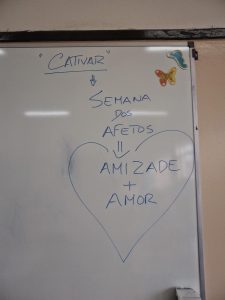 "CATIVAR"
↓
SEMANA
DOS
AFETOS
⇓
AMIZADE
+
AMOR